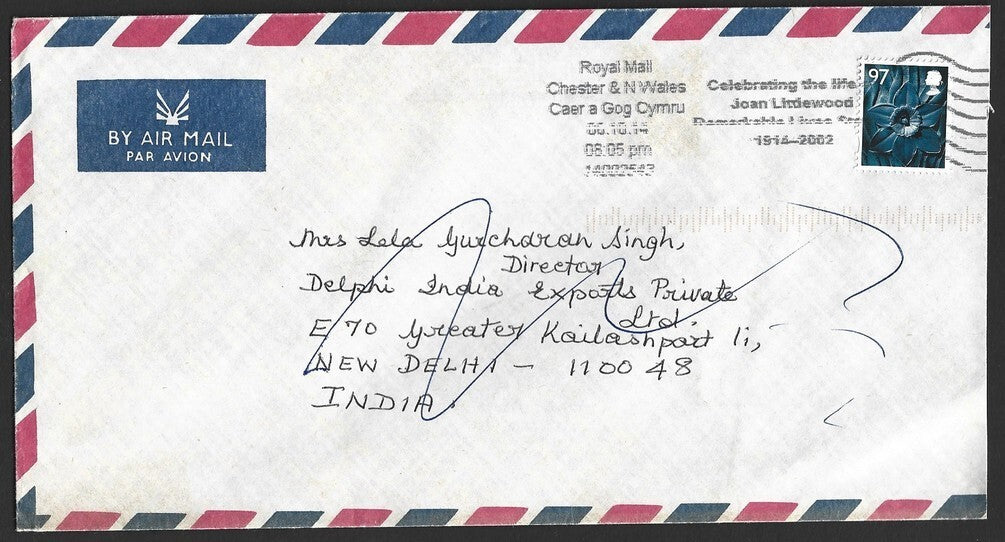 BY AIR MAIL
PAR AVION
Royal Mail
Chester & N Wales
Caer a Gog Cymru
06.10.14
08:05 pm
Celebrating the life
Joan Littlewood
Remarkable Lives
1914–2002
97
Mrs Lela Gurcharan Singh,
Director
Delphi India Exports Private
Ltd.
E 70 Greater Kailashpart ii,
NEW DELHI – 110048
INDIA.